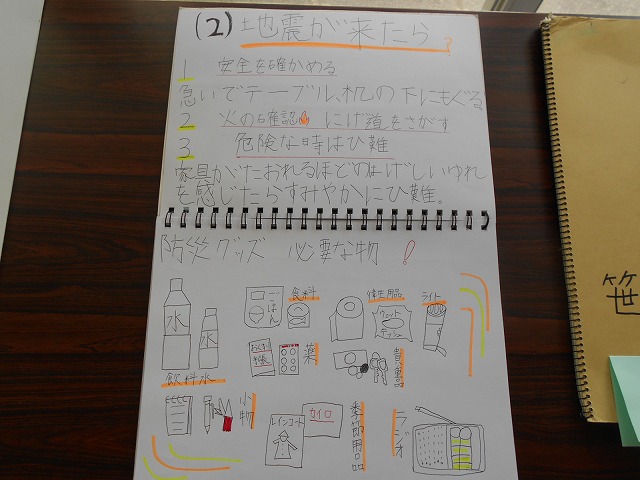 (2) 地震が来たら?
1 安全を確かめる
急いでテーブル、机の下にもぐる
2 火の確認 にげ道をさがす
3 危険な時はひ難
家具がたおれるほどのはげしいゆれ
を感じたらすみやかにひ難。
防災グッズ 必要な物!
食料
衛生用品
ライト
水
水
ごはん
ウェット
ティッシュ
おくすり
手帳
薬
貴重品
飲料水
小物
レインコート
カイロ
季節用品
ラジオ
笹